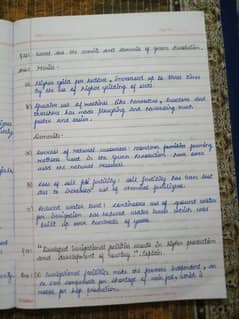 Q(2) What are the merits and demerits of green revolution.
Ans: Merits:-
Higher yield per hectare, increased up to three times
by the use of higher yielding of seeds.
Greater use of machines like harvesters, tractors and
threshers has made ploughing and harvesting much
faster and easier.
Demerits:-
Overuse of natural resources: modern farming
methods used in the green revolution have over
used the natural resources.
Loss of soil fertility: soil fertility has been lost
due to increased use of chemical fertilizers.
Reduced water level: continuous use of ground water
for irrigation has reduced water levels which was
built up over hundreds of years.
"Developed irrigational facilities results in higher production
and development of country". Explain.
Irrigational facilities make the farmers independent, so
he can compensate for shortage of rain fall, which is
needed for high production.